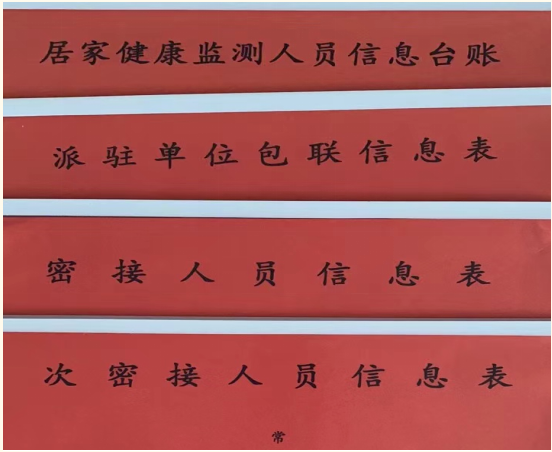 居家健康监测人员信息台账
派驻单位包联信息表
密接人员信息表
次密接人员信息表
常